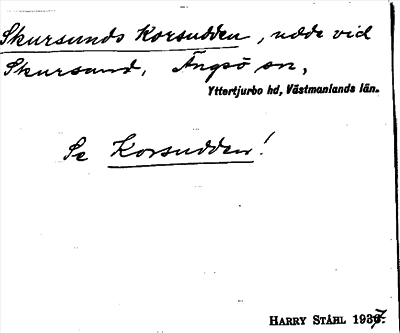 Skursunds Korsudden, udde vid
Skursund, Ängsö sn,
Yttertjurbo hd, Västmanlands län.
Se Korsudden!
HARRY STÅHL 1937.